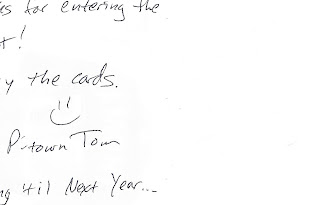 es for entering the
t!
y the cards.
P-town Tom
ng 4il Next Year...